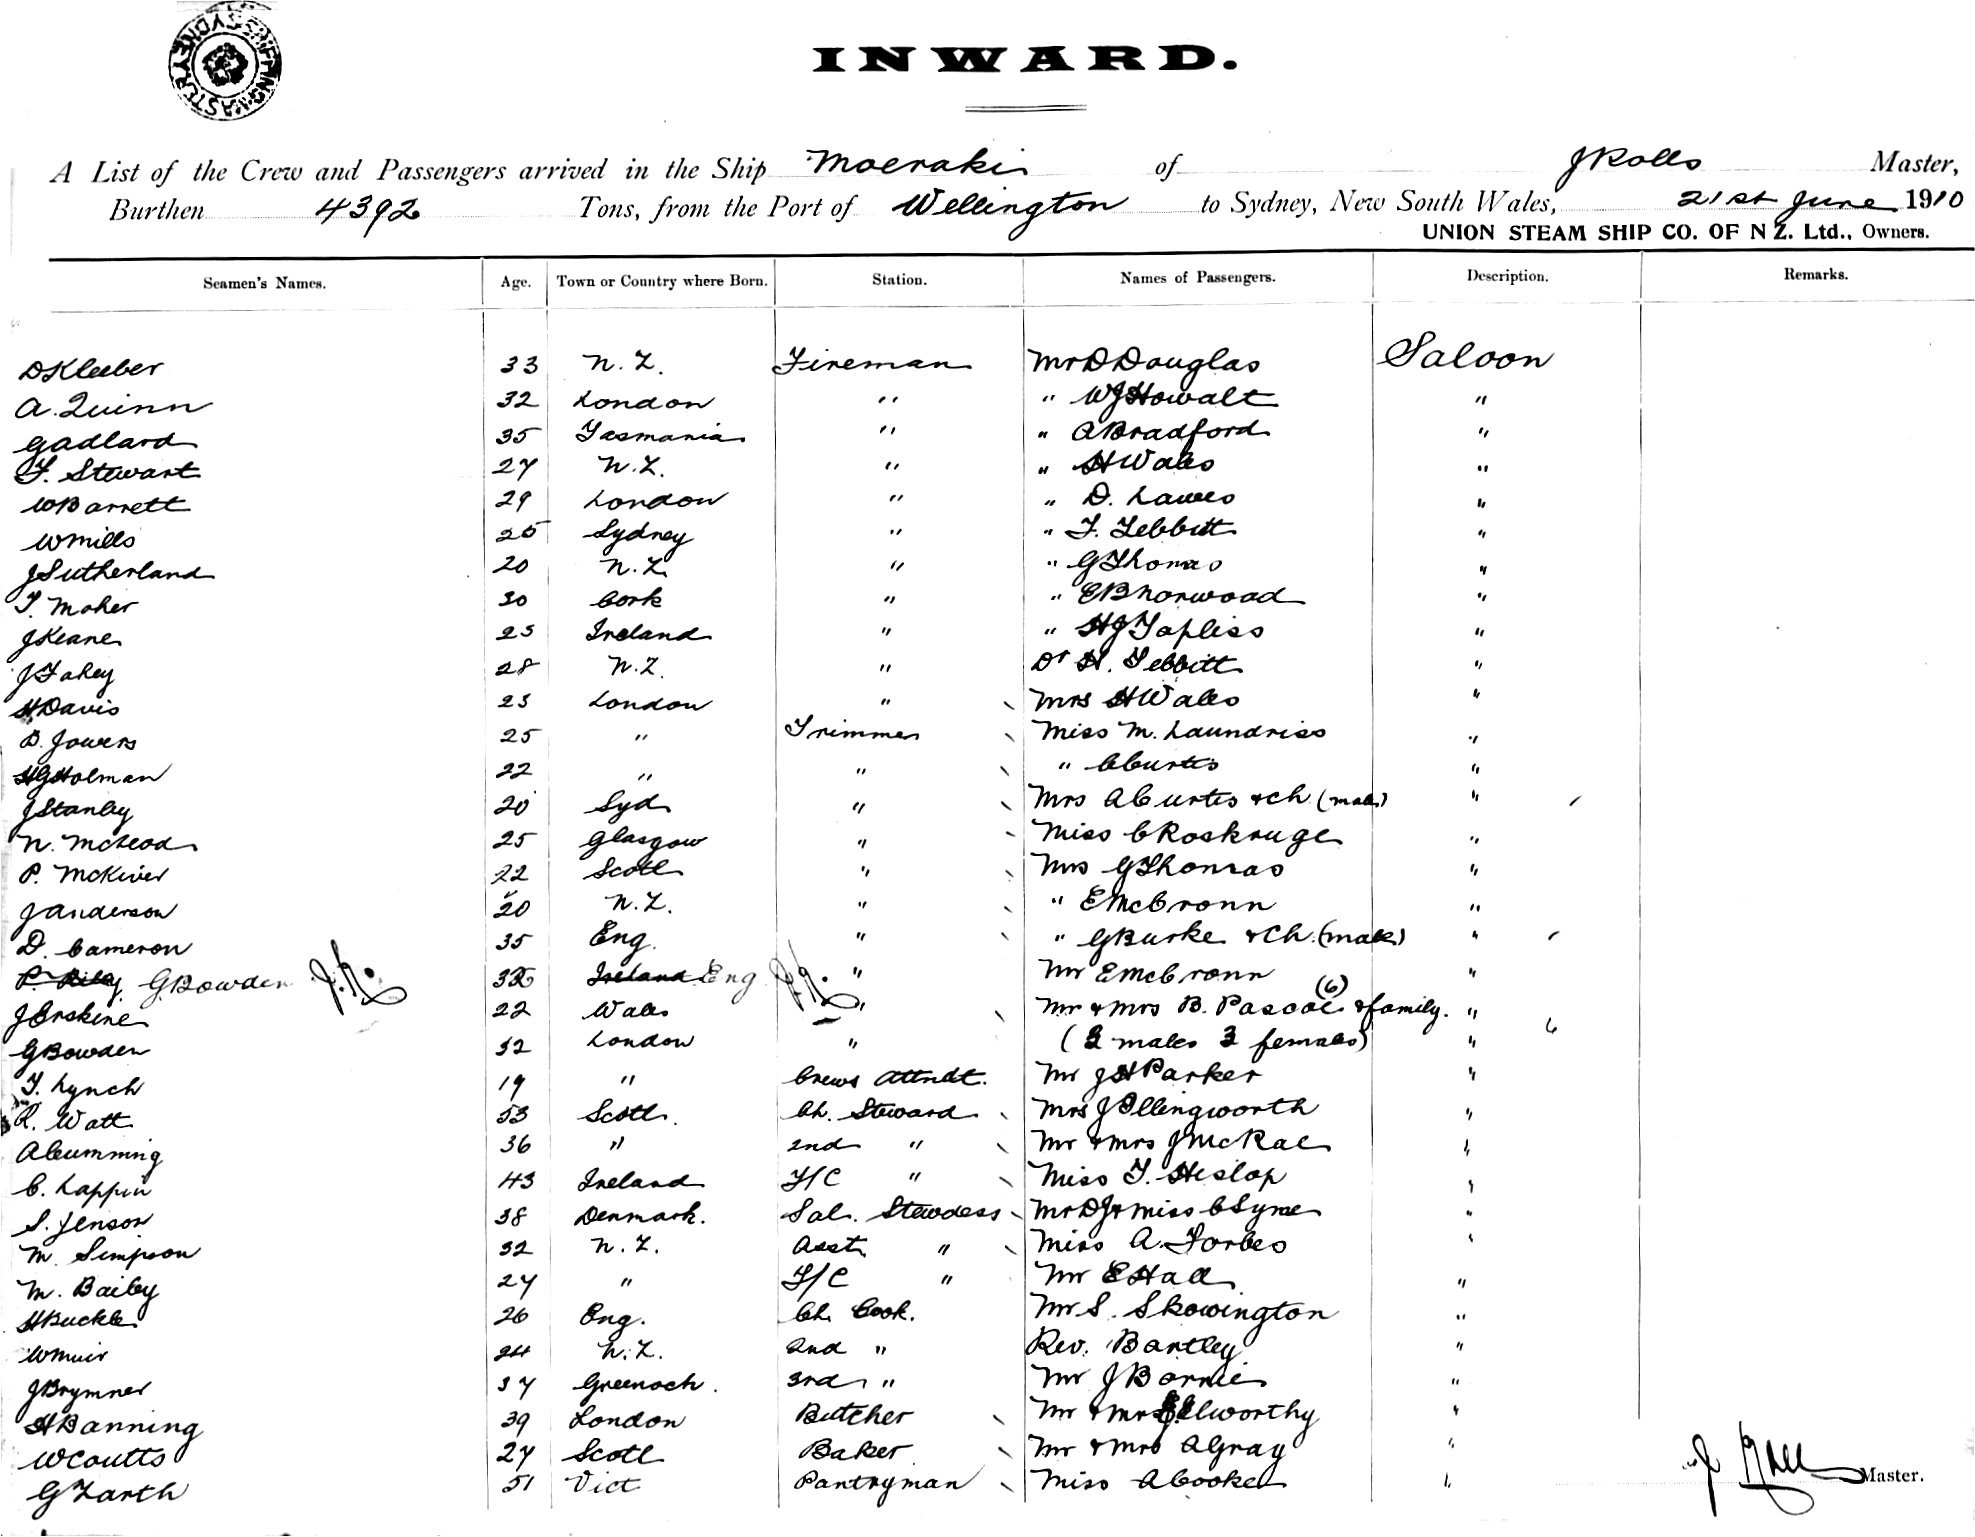 SHIPPING MASTER SYDNEY
INWARD.
A List of the Crew and Passengers arrived in the Ship Moeraki of J Rolls Master,
Burthen 4392 Tons, from the Port of Wellington to Sydney, New South Wales, 21st June 1910
UNION STEAM SHIP CO. OF N Z. Ltd., Owners.
Seamen's Names. Age. Town or Country where Born. Station. Names of Passengers. Description. Remarks.
D Kleeber 33 N.Z. Fireman Mr D Douglas Saloon
A. Quinn 32 London " " W J Howalt "
G Adlard 35 Tasmania " " A Bradford "
F. Stewart 27 N.Z. " " H Wales "
W Barrett 29 London " " D. Lawes "
W Mills 25 Sydney " " F. Tebbitt "
J Sutherland 20 N.Z. " " G Thomas "
T. Maher 30 Cork " " E B Norwood "
J Keane 23 Ireland " " H J Tapliss "
J Fahey 28 N.Z. " Dr H. Tebbitt "
H Davis 23 London " Mrs H Wales "
B. Jowers 25 " Trimmer Miss M. Laundriss "
H G Holman 22 " " " C Curtis "
J Stanley 20 Syd " Mrs A Curtis & ch (male) "
N. McLeod 25 Glasgow " Miss C Roskruge "
P. McKiver 22 Scotl " Mrs G Thomas "
J Anderson 20 N.Z. " " E McCronn "
D. Cameron 35 Eng. " " G Burke & Ch. (male) "
P. Riley G Bowden J.R. 32 Ireland Eng J.R. " Mr E McCronn "
J Erskine 22 Wales " Mr & Mrs B. Pascoe (6) & family. "
G Bowden 32 London " (3 males 3 females) " 6
T. Lynch 19 " Crews Attndt. Mr J H Parker "
R. Watt 53 Scotl. Ch. Steward Mrs J Illingworth "
A Cumming 36 " 2nd " Mr & Mrs J McRae "
C. Lappin 43 Ireland F/C " Miss T. Heslop "
S. Jenson 38 Denmark. Sal. Stewdess Mr D J & Miss C Syme "
M. Simpson 32 N.Z. Asst. " Miss A. Forbes "
M. Bailey 27 " F/C " Mr E Hall "
H Buckle 26 Eng. Ch. Cook. Mr S. Skowington "
W Muir 24 N.Z. 2nd " Rev. Bartley "
J Brymner 37 Greenock. 3rd " Mr J Barrie "
H Banning 39 London Butcher Mr & Mrs Elworthy "
W Coutts 27 Scotl Baker Mr & Mrs A Gray "
G Larth 51 Vict Pantryman Miss A Cooke "
Master.